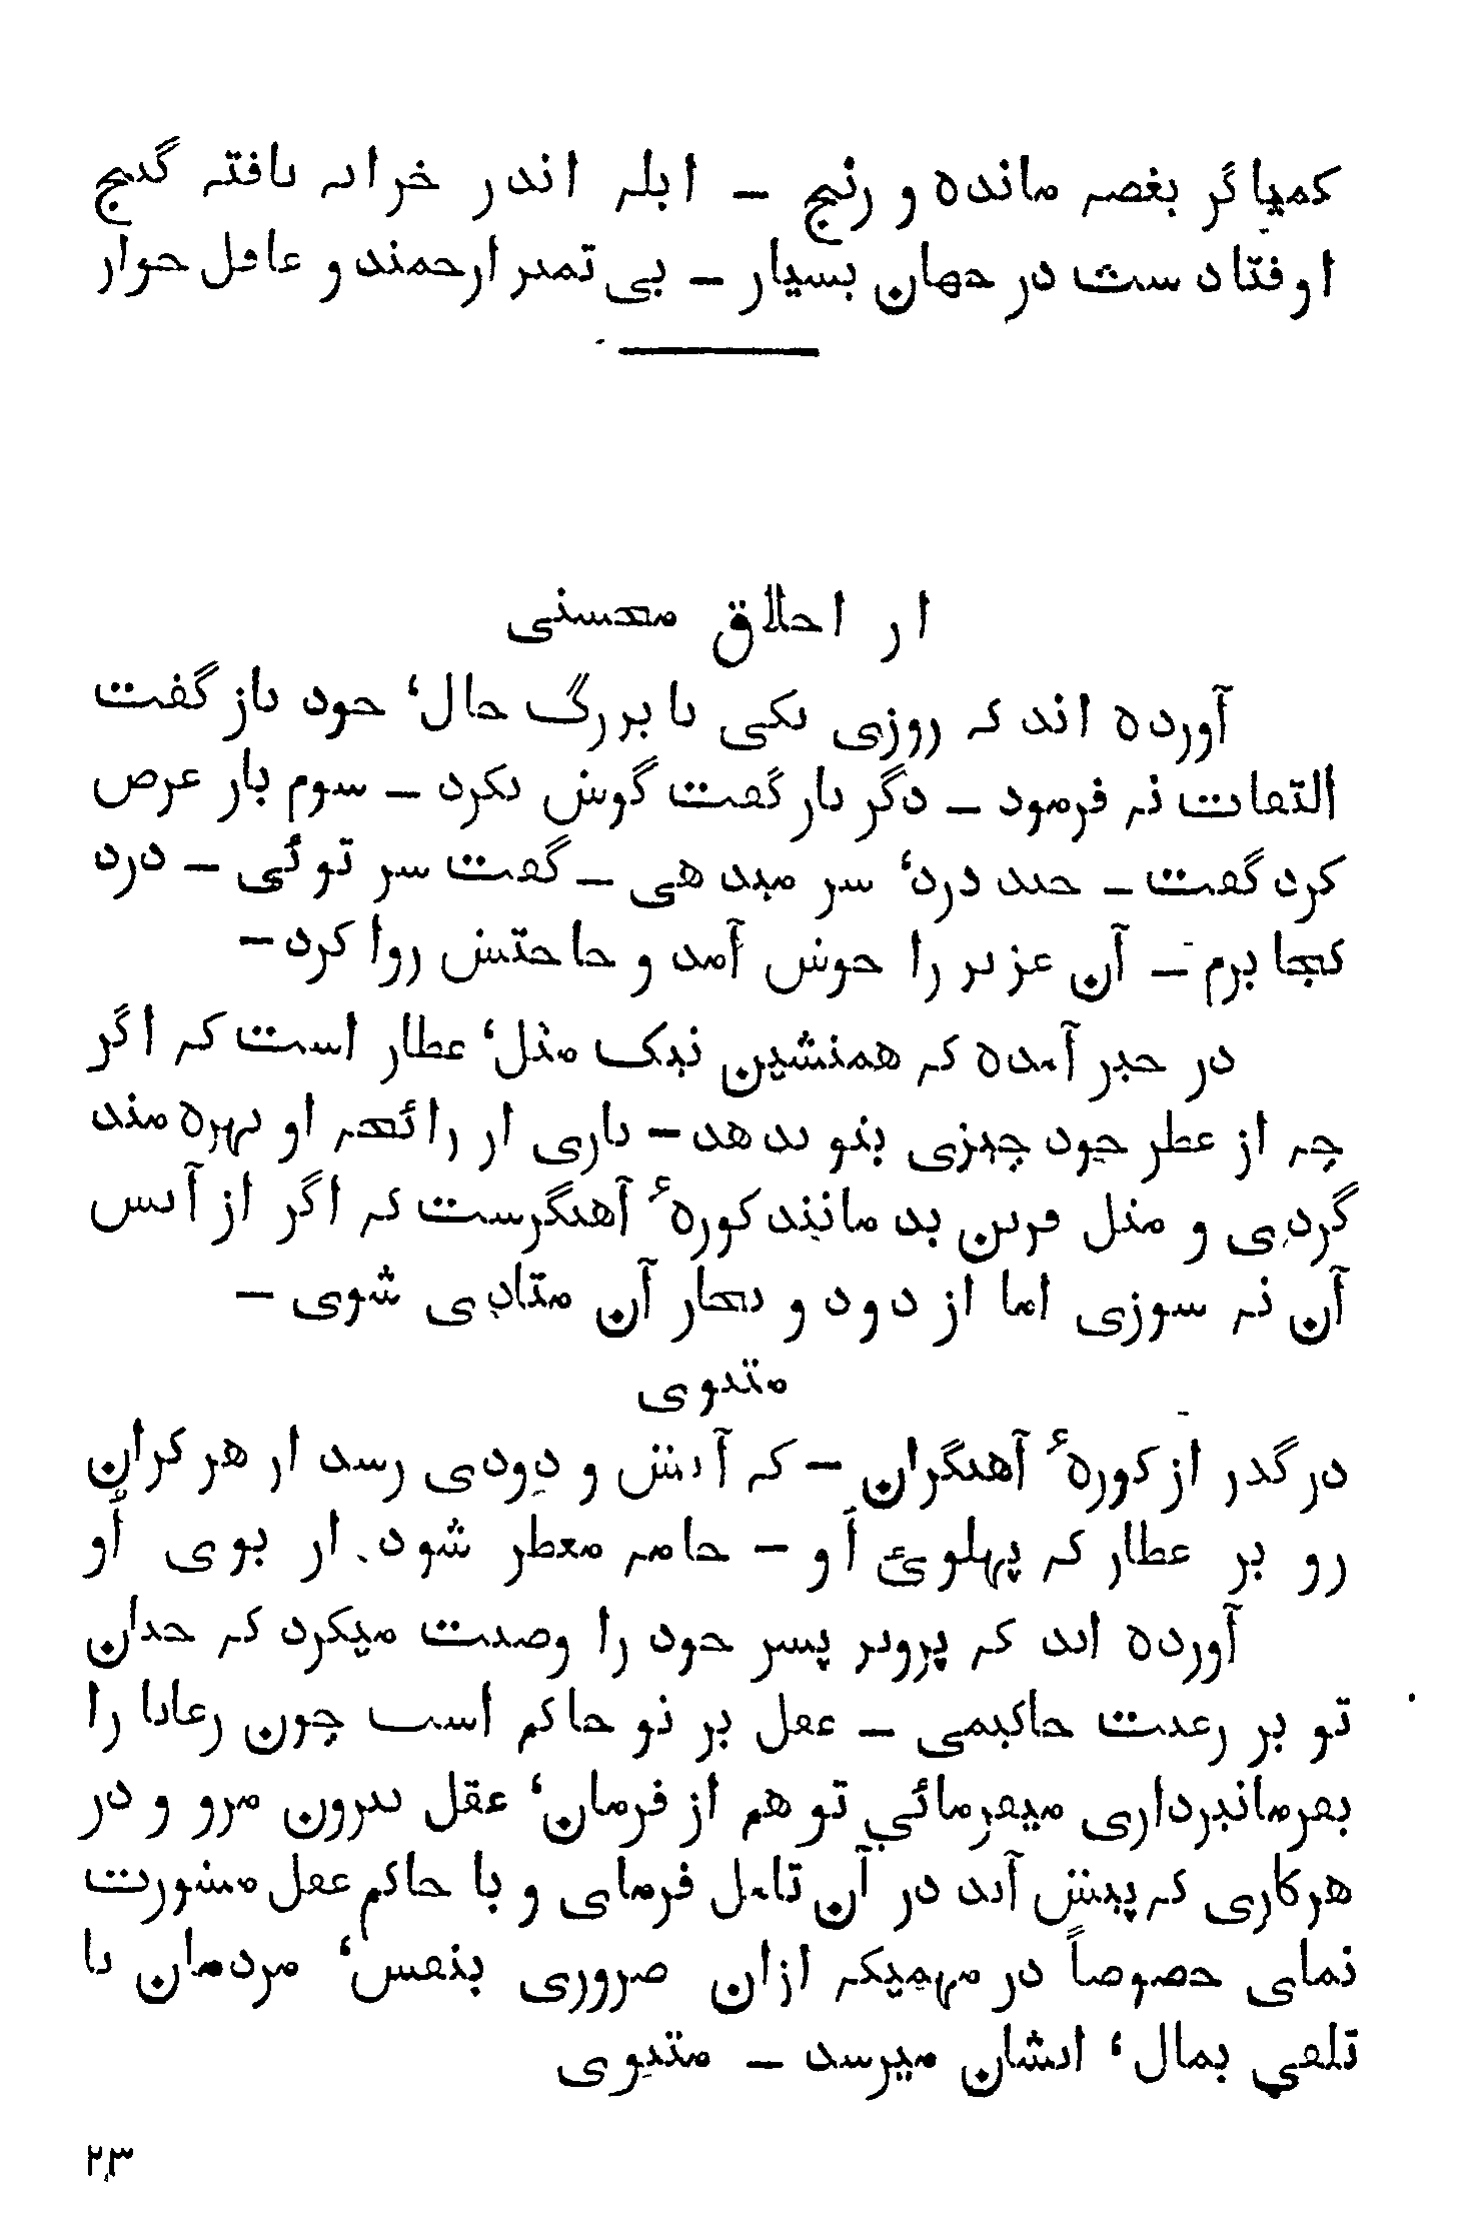 کمیاگر بغصه مانده و رنج – ابله اندر خرابه یافته گنج
اوفتادست در جهان بسیار – بی تمیز ارجمند و عاقل خوار
از اخلاق محسنی
آورده اند که روزی یکی با بزرگ حال‘ خود باز گفت
التفات نه فرمود – دگر بار گفت گوش نکرد – سوم بار عرض
کرد گفت – چند درد‘ سر میدهی – گفت سر توئی – درد
کجا برم – آن عزیز را خوش آمد و حاجتش روا کرد –
در خبر آمده که همنشین نیک مثل‘ عطار است که اگر
چه از عطر خود چیزی بتو ندهد – باری از رائحه او بهره مند
گردی و مثل قرین بد مانند کورهٔ آهنگرست که اگر از آتش
آن نه سوزی اما از دود و بخار آن متاذی شوی –
مثنوی
در گذر از کورهٔ آهنگران – که آتش و دودی رسد از هر کران
رو بر عطار که پهلوئ اُو – جامه معطر شود از بوی اُو
آورده اند که پرویز پسر خود را وصیت میکرد که چندان
تو بر رعیت حاکیمی – عقل بر تو حاکم است چون رعایا را
بفرمانبرداری میفرمائی تو هم از فرمان‘ عقل بیرون مرو و در
هرکاری که پیش آید در آن تامل فرمای و با حاکم عقل مشورت
نمای خصوصاً در مهمیکه ازان ضروری بنفس‘ مردمان یا
تلفی بمال‘ ایشان میرسد – مثنوی
۲۳